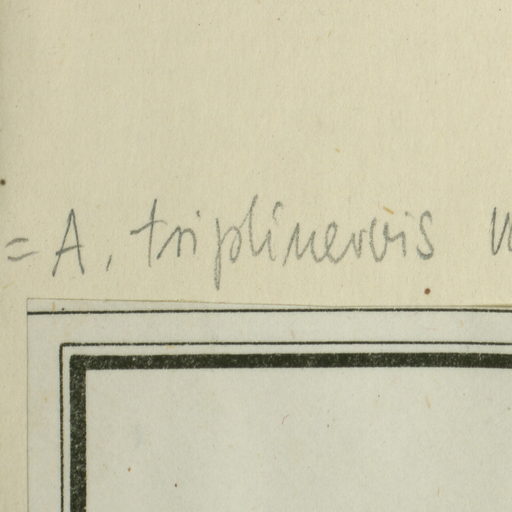 = A. triplinervis